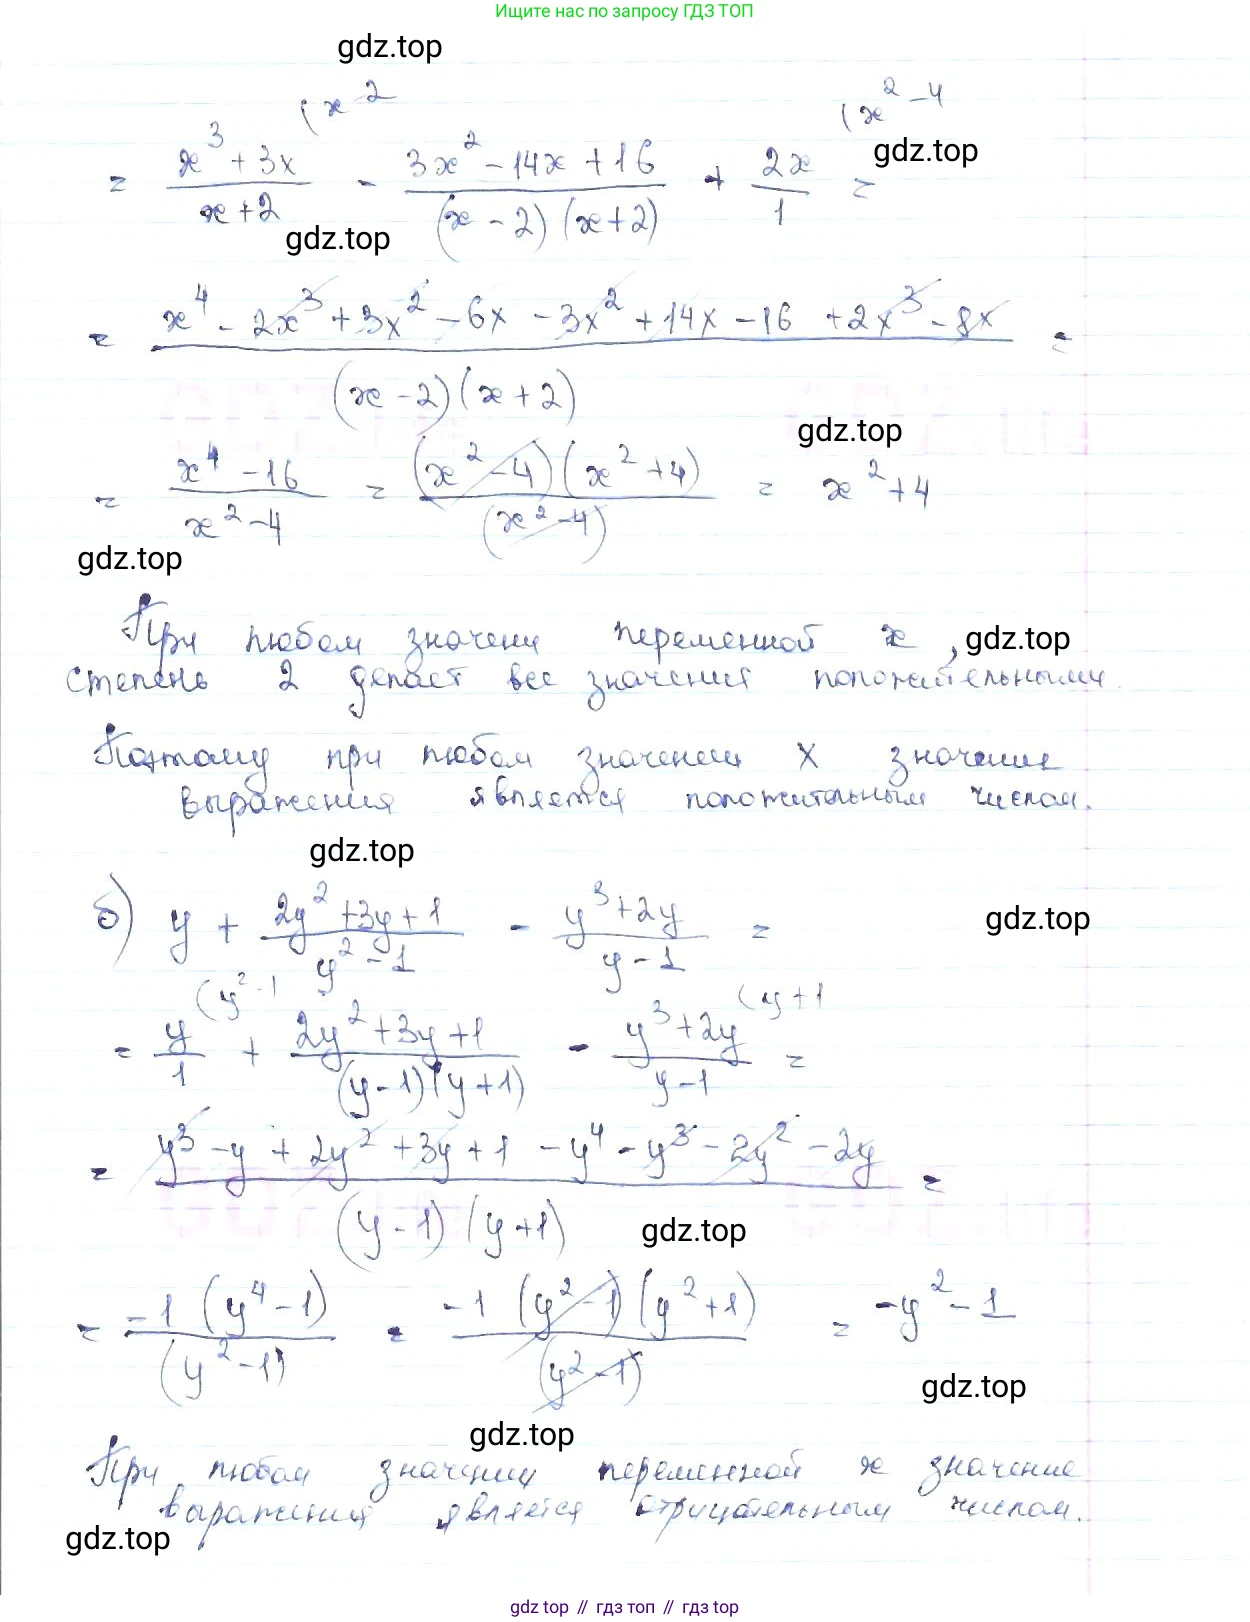 Ищите нас по запросу ГДЗ ТОП
gdz.top
(x-2 (x²-4
= x³+3x/x+2 - 3x²-14x+16/(x-2)(x+2) + 2x/1 =
gdz.top
gdz.top
= x⁴-2x³+3x²-6x-3x²+14x-16+2x³-8x/(x-2)(x+2) =
gdz.top
= x⁴-16/x²-4 = (x²-4)(x²+4)/(x²-4) = x²+4
gdz.top
При любом значени переменной x, gdz.top
степень 2 делает все значения положительными.
Поэтому при любом значении x значение
выражения является положительным числом.
gdz.top
б) y + 2y²+3y+1/y²-1 - y³+2y/y-1 =
gdz.top
(y²-1 (y+1
= y/1 + 2y²+3y+1/(y-1)(y+1) - y³+2y/y-1 =
= y³-y+2y²+3y+1-y⁴-y³-2y²-2y/(y-1)(y+1) =
gdz.top
= -1(y⁴-1)/(y²-1) = -1(y²-1)(y²+1)/(y²-1) = -y²-1
gdz.top
gdz.top
При любом значении переменной x значение
выражения является отрицательным числом.
gdz.top
gdz.top // гдз топ // gdz.top